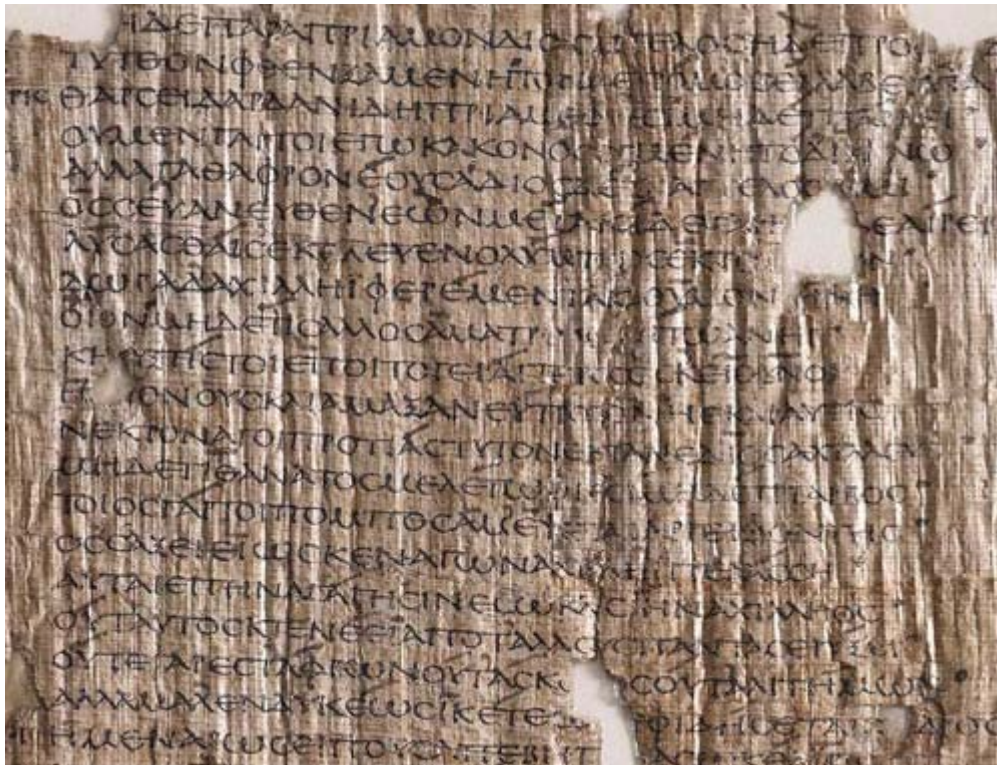 ΗΔΕΠΑΡΑΠΡΙΑΜΟΝΔΙΟϹ ΓΓΕΛΟϹΗΔΕΠΡΟ
ΤΥΤΘΟΝΦΘΕΝΞΑΜΕΝΗΤΟΝΔΕΤΡΟΜΟϹΕΛΛΑΒΕ
ΘΑΡϹΕΙΔΑΡΔΑΝΙΔΗΠΡΙΑΜΕΦΡΕϹΙΜΗΔΕΤΙΤΑΡΒΕΙ
ΟΥΜΕΝΓΑΡΤΟΙΕΓΩΚΑΚΟΝΟϹ ΟΜΕΝΗΤΟΔΙΚΑΝΩ
ΑΛΛΑΓΑΘΑΦΡΟΝΕΟΥϹΑΔΙΟϹΔΕΤ ΑΓ ΕΛΟϹΕΙΜΙ
ΟϹϹΕΥΑΝΕΥΘΕΝΕΩΝΜΕΓΑΚΗΔΕΤΑΙΗ ΕΛΕΑΙΡΕΙ
ΛΥϹΑϹΘΑΙϹΕΚΕΛΕΥΕΝΟΛΥΜΠΙΟϹΕΚΤ ΟΝ
ΔΩΡΑΔΑΧΙΛΛΗΙΦΕΡΕΜΕΝΤΑΚΕΘΥΜΟΝ ΗΝΗ
ΟΙΟΝΜΗΔΕΤΙϹΑΛΛΟϹΑΜΑΤΡ ΙΤΩΑΝΗΡ
ΚΗ ΥΞΤΙϹΤΟΙΕΠΟΙΤΟΓΕΡΑΙΤΕΡΟϹΟϹΚΕΙΘΥΝΟΙ
Η ΙΟΝΟΥϹΚΑΙΑΜΑΞΑΝΕΥΤΡΟΧΟΝΗΔΕΚΑΙΑΥΤΙϹ
ΝΕΚΡΟΝΑΓΟΙΠΡΟΤΙΑϹΤΥΤΟΝΕΚΤΑΝΕΔΙΟϹΑΧΙΛΛΕΥϹ
ΜΗΔΕΤΙΘΑΝΑΤΟϹΜΕΛΕΤΩΦΡΕϹΙΜΗΔΕΤΙΤΑΡΒΟϹ
ΤΟΙΟϹΓΑΡΤΟΙΠΟΜΠΟϹΑΜΕΨΕΤΑΙΑΡΓΕΙΦΟΝΤΗϹ
ΟϹϹΑΞΕΙΕΙΩϹΚΕΝΑΓΩΝΑΧΙΛΗΙΠΕΛΑϹϹΗ
ΑΥΤΑΡΕΠΗΝΑΓΑΓΗϹΙΝΕϹΩΚΛΙϹΙΗΝΑΧΙΛΗΟϹ
ΟΥΤΑΥΤΟϹΚΤΕΝΕΕΙΑΠΟΤΑΛΛΟΥϹΠΑΝΤΑϹΕΡΥΞΕΙ
ΟΥΤΕΓΑΡΕϹΤΑΦΡΩΝΟΥΤΑϹΚΟ ΟϹΟΥΤΑΛΙΤΗΜΩΝ
ΑΛΛΑΜΑΛΕΝΔΥΚΕΩϹΙΚΕΤΕΩ ΕΦΙΔΗϹΕΤΑΙΑ ΔΡΟϹ
ΗΜΕΝΑΡΩϹΕΙΠΟΥϹΑΠΕΒΗ